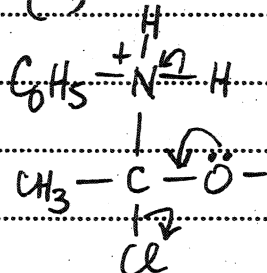 H
+
C6H5 — N — H
CH3 — C — O —
Cl